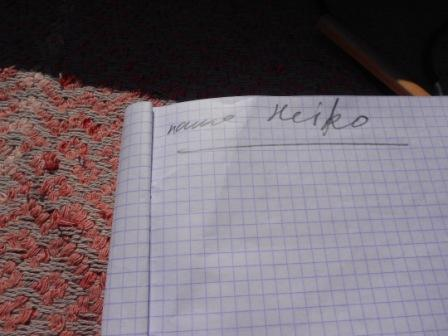 name Heiko